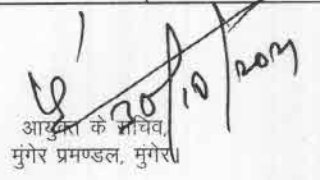 30/10/2021
आयुक्त के सचिव,
मुंगेर प्रमण्डल, मुंगेर।